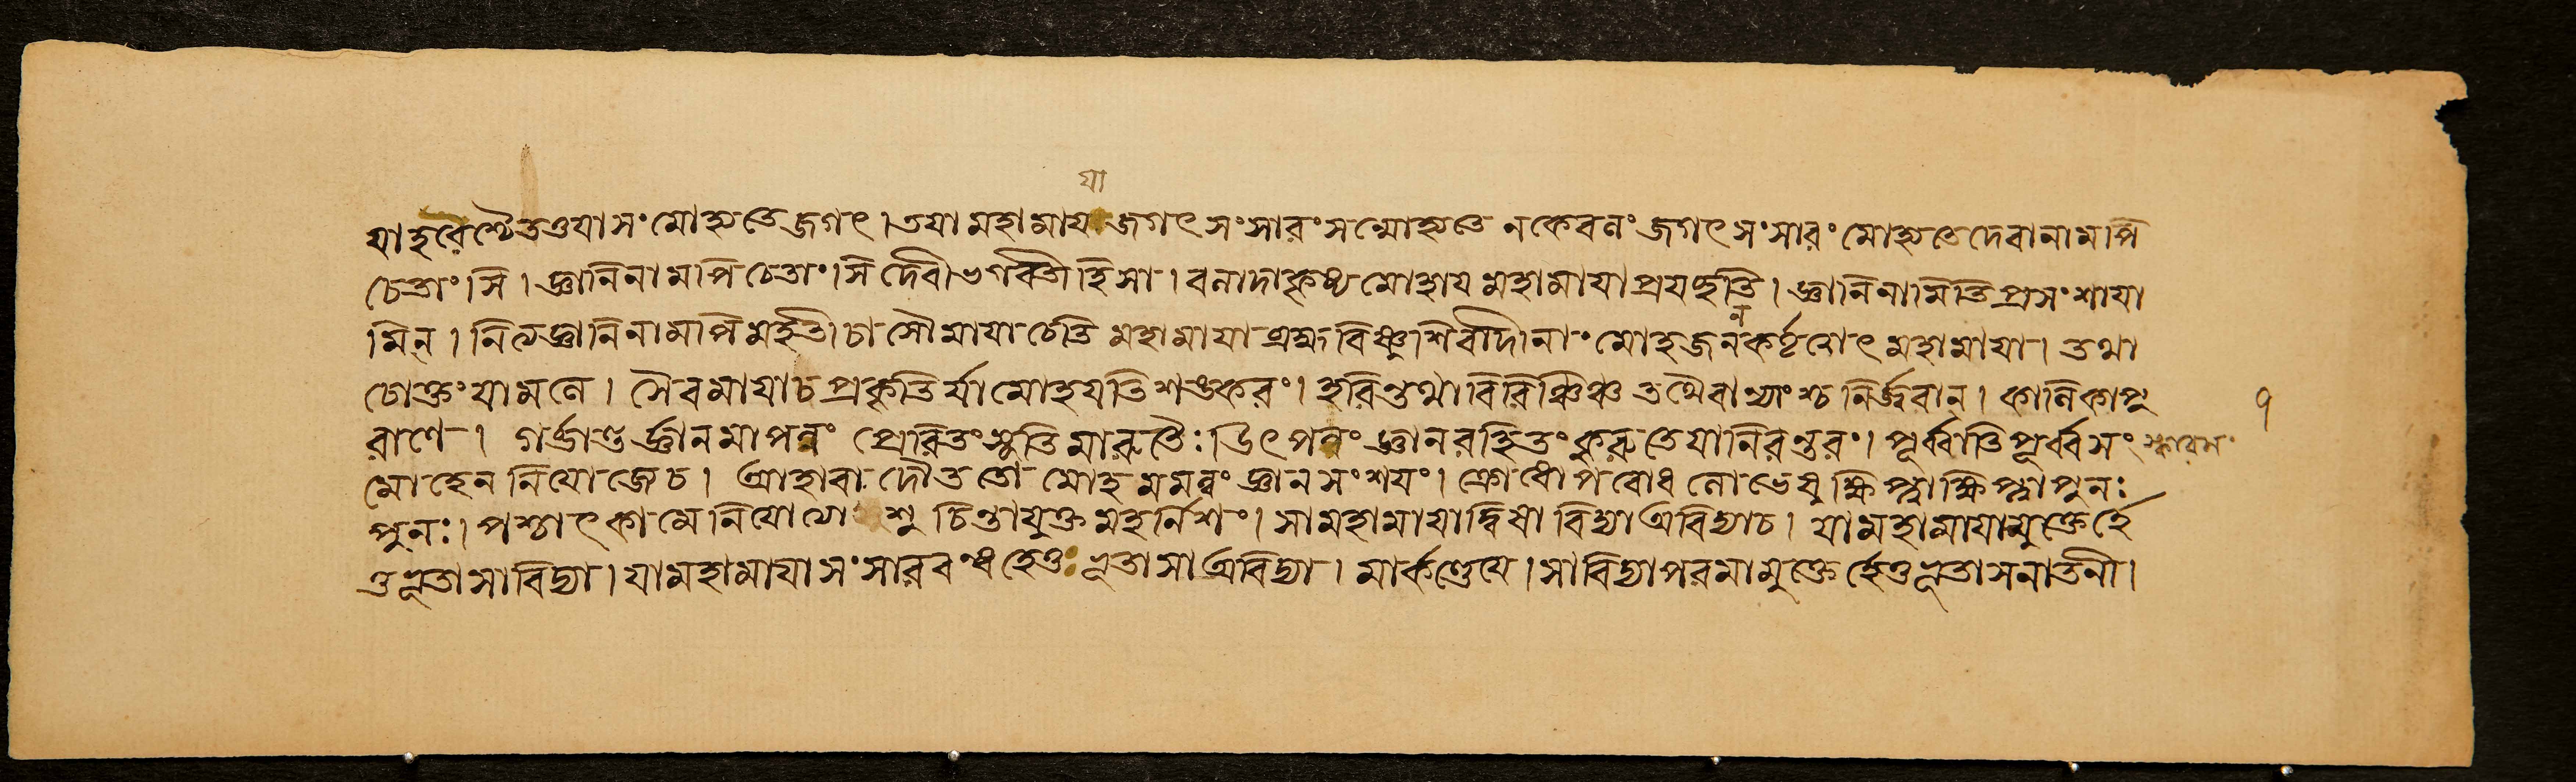 যা
যা হরৈশ্চৈতত্তয়া সংমোহ্যতে জগৎ। তয়া মহামায়য়া জগৎ সংসারং সন্মোহ্যতে ন কেবলং জগৎ সংসারং মোহ্যতে দেবানামপি
চেতাংসি। জ্ঞানিনামপি চেতাংসি দেবী ভগবতী হি সা। বলাদাকৃষ্য মোহায় মহামায়া প্রযচ্ছতি। জ্ঞানিনামিতি প্রসংশায়া
মিন্। নিত্যজ্ঞানিনামপি মহতী চাসৌ মায়া চেতি মহামায়া ব্রহ্মবিষ্ণুশিবাদীনাং মোহজনকর্তৃত্বাৎ মহামায়া। তথা
ন
চোক্তং যামলে। সৈব মায়া চ প্রকৃতির্যা মোহয়তি শঙ্করং। হরিন্তথা বিরিঞ্চিঞ্চ তথৈবান্যাংশ্চ নির্জরান্। কালিকাপু
৭
রাণে। গর্ভান্তর্জ্ঞানমাপন্নং প্রেরিতং সূতিমারুতৈঃ। উৎপন্নং জ্ঞানরহিতং কুরুতে যা নিরন্তরং। পূর্ব্বাতিপূর্ব্বসং
স্কারসং
মোহেন নিযোজ্যে চ। আহারাদৌ ততো মোহমমত্বং জ্ঞানসংশয়ং। ক্রোধোপরোধলোভেষু ক্ষিপ্ত্বা ক্ষিপ্ত্বা পুনঃ
পুনঃ। পশ্চাৎ কামে নিযোজ্যাশু চিন্তাযুক্তমহর্নিশং। সা মহামায়া দ্বিষা বিদ্যা অবিদ্যা চ। যা মহামায়া মুক্তের্হে
তুভূতা সা বিদ্যা। যা মহামায়া সংসারবন্ধহেতুভূতা সা অবিদ্যা। মার্কণ্ডেয়ে। সা বিদ্যা পরমা মুক্তের্হেতুভূতা সনাতনী।